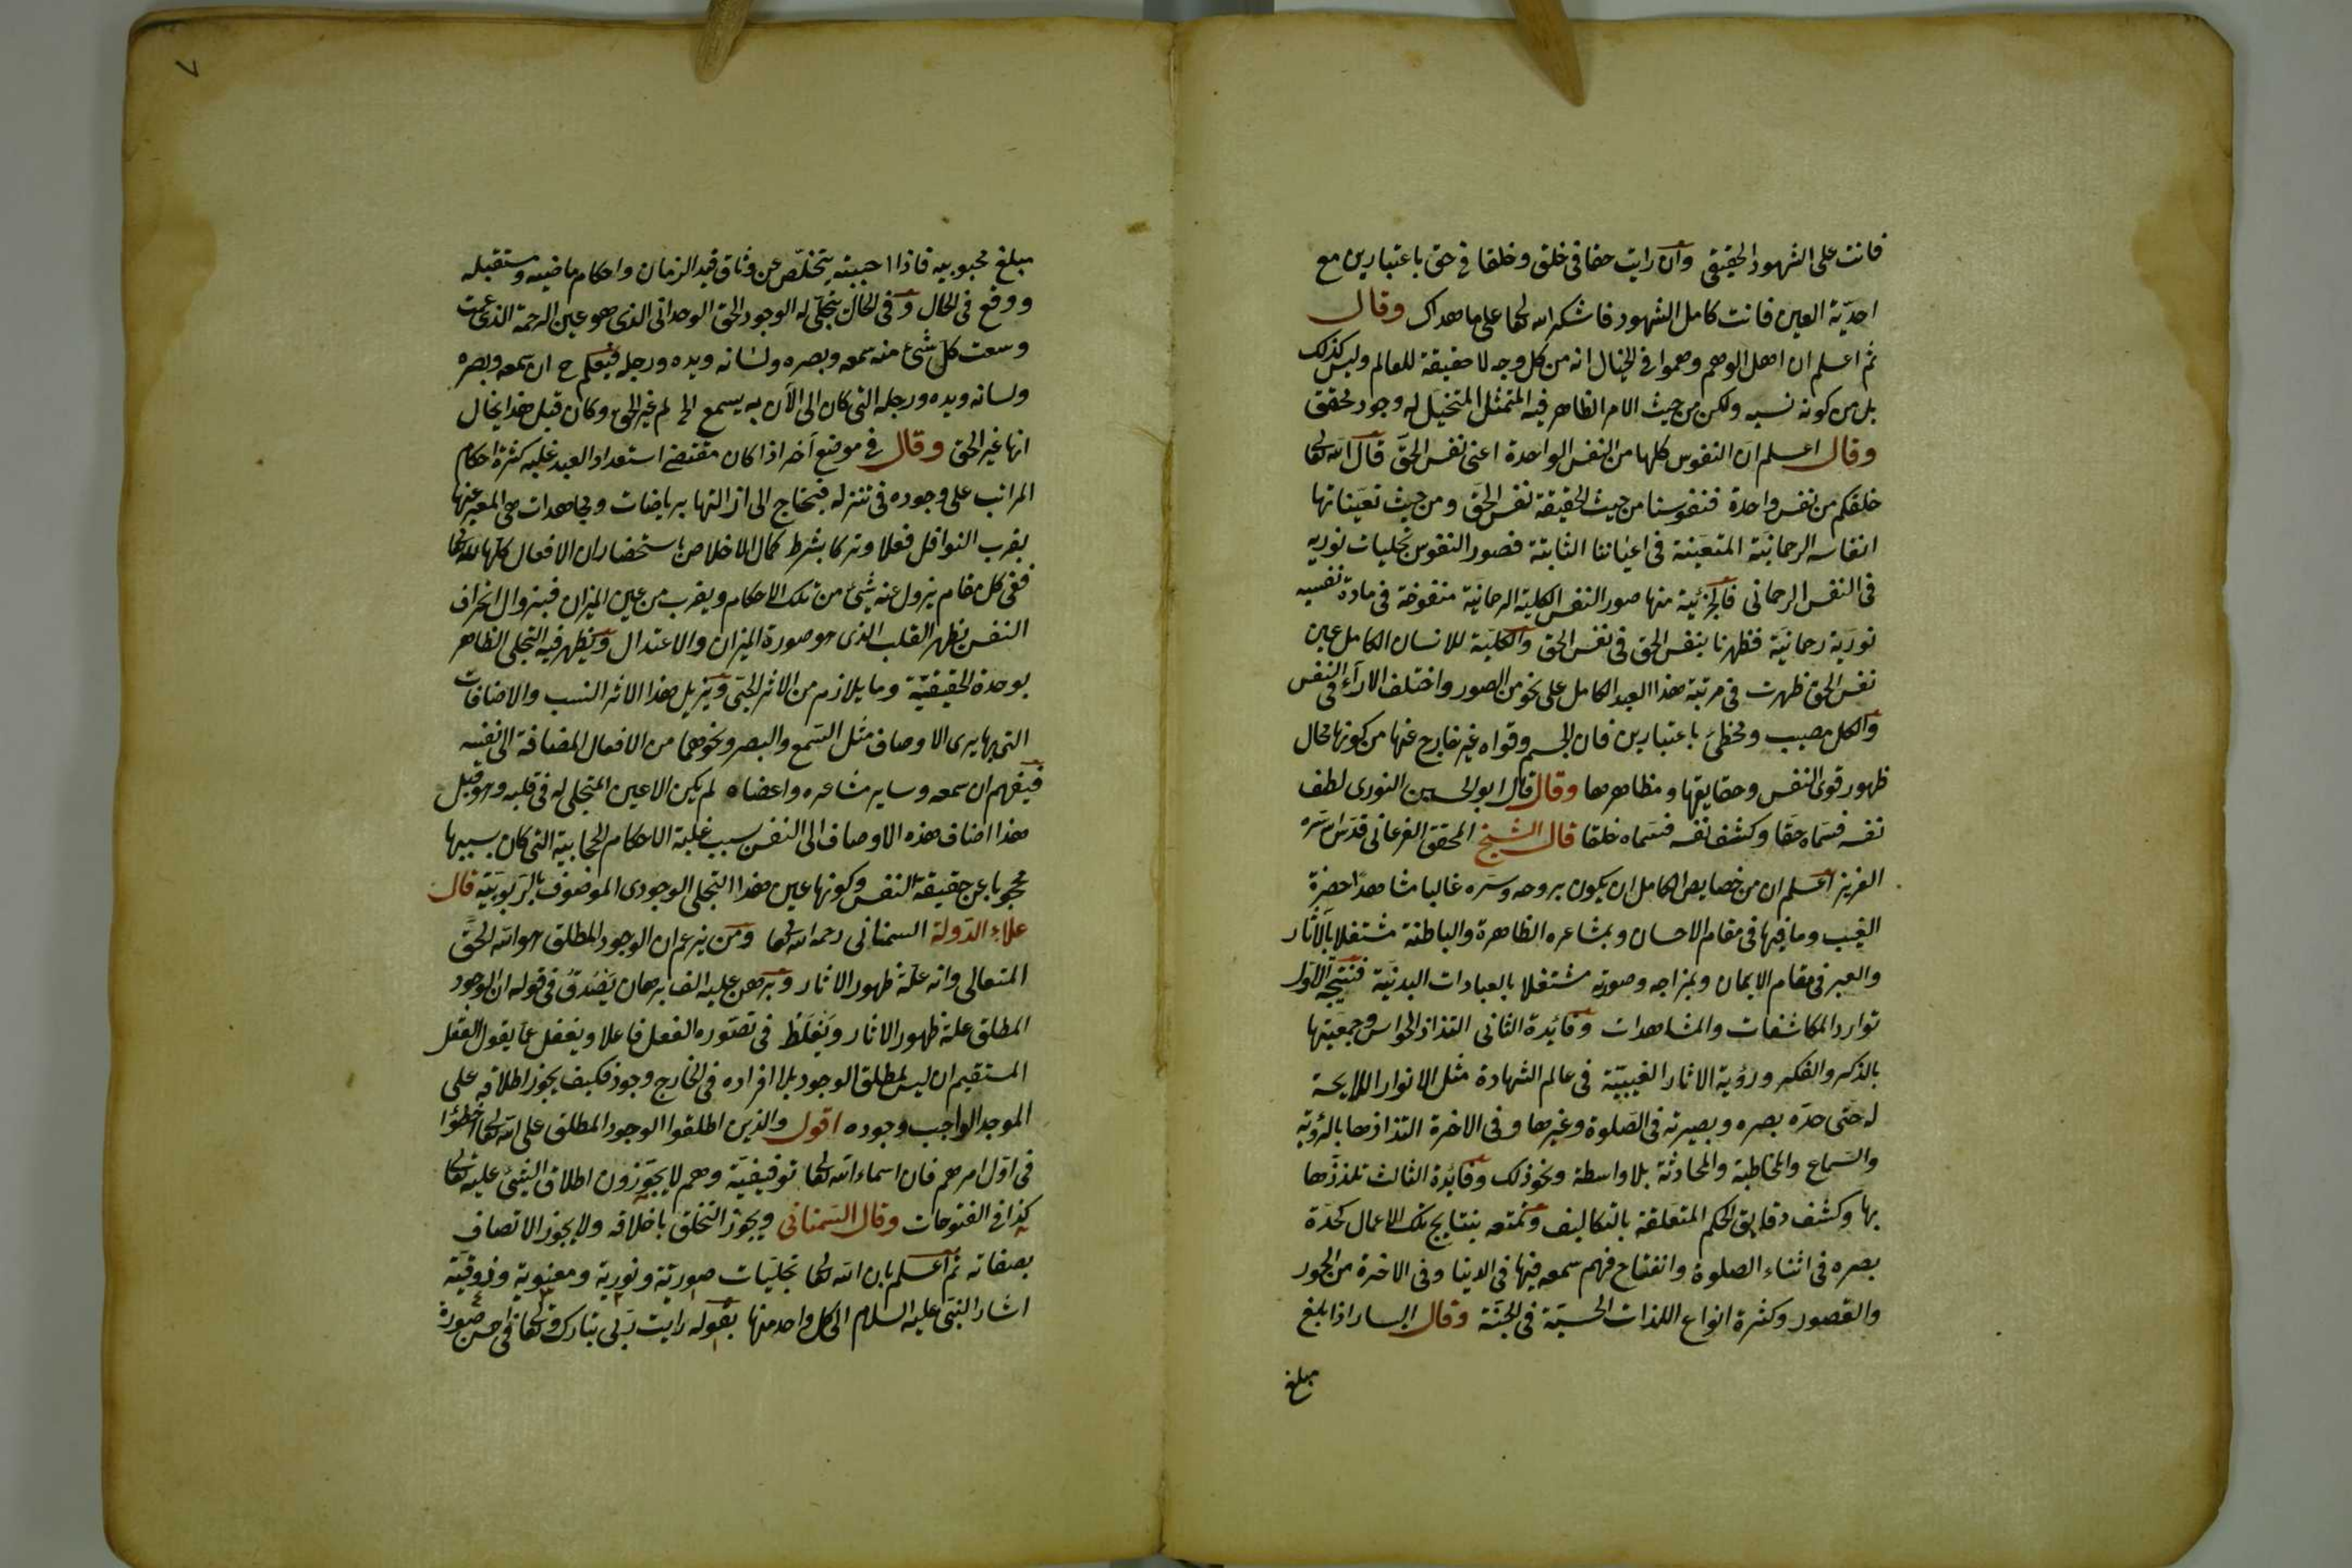 فانت على الشهود الحقيقى وان رايت حقا فى خلق وخلقا فى حق باعتبارين مع
احديّة العين فانت كامل الشهود فاشكر الله تعالى على ما هداك وقال
ثم اعلم ان اهل الوهم وهموا فى الخيال انه من كل وجه لا حقيقة للعالم وليس كذلك
بل من كونه نسبه ولكن من حيث الامر الظاهر فيه المتمثل المتخيل له وجود محقق
وقال اعلم ان النفوس كلها من النفس الواحدة اعنى نفس الحق قال الله تعالى
خلقكم من نفس واحدة فنفوسنا من حيث الحقيقة نفس الحق ومن حيث تعيناتها
انفاسه الرحمانية المتعينة فى اعياننا الثابتة فصور النفوس تجليات نوريه
فى النفس الرحمانى فالجزئية منها صور النفس الكلية الرحمانية منفوخة فى مادة نفسيه
نورية رحمانية فظهرنا بنفس الحق فى نفس الحق والكلية للانسان الكامل عين
نفس الحق ظهرت فى مرتبة هذا العبد الكامل على نحو من الصور واختلف الاراء فى النفس
والكل مصيب ومخطئ باعتبارين فان الجسم وقواه غير خارج عنها من كونها محال
ظهور قوى النفس وحقايقها ومظاهرها وقال قال ابو الحسين النورى لطف
نفسه فسماه حقا وكشف نفسه فسماه خلقا قال الشيخ المحقق الفرغانى قدس سره
العزيز اعلم ان من خصايص الكامل ان يكون بروحه وسره غالبا مشاهدا حضرة
الغيب وما فيها فى مقام الاحسان وبمشاعره الظاهرة والباطنة مشتغلا بالاثار
والعبر فى مقام الايمان وبمزاجه وصورته مشتغلا بالعبادات البدنية فنتيجة الاول
توارد المكاشفات والمشاهدات وفائدة الثانى التذاذ الحواس وجمعيتها
بالذكر والفكر ورؤية الاثار الغيبيّة فى عالم الشهادة مثل الانوار اللايحة
له حتى حدّه بصره وبصيرته فى الصلوة وغيرها وفى الاخرة التذاذها بالرؤية
والسماع والمخاطبة والمحادثة بلا واسطة ونحو ذلك وفائدة الثالث تلذذها
بها وكشف دقايق الحكم المتعلقة بالتكاليف وتمتعه بنتايج تلك الاعمال كحدة
بصره فى اثناء الصلوة وانفتاح فهم سمعه فيها فى الدنيا وفى الاخرة من الحور
والقصور وكثرة انواع اللذات الحسيّة فى الجنة وقال السار اذا بلغ
مبلغ
٧
مبلغ محبوبيه فاذا احببته يتخلّص عن وثاق قيد الزمان واحكام ماضيه ومستقبله
ووقع فى الحال وفى الحال يتجلى له الوجود الحق الوحدانى الذى هو عين الرحمة الذى عمت
وسعت كل شئ منه سمعه وبصره ولسانه ويده ورجله فيعلم ح ان سمعه وبصره
ولسانه ويده ورجله التى كان الى الآن به يسمع الخ لم غير الحق وكان قبل هذا يخال
انها غير الحق وقال فى موضع آخر اذا كان مقتضى استعداد العبد غلبه كثرة احكام
المراتب على وجوده فى تنزله فيحتاج الى ازالتها برياضات ومجاهدات هى المعبر عنها
بقرب النوافل فعلا وتركا بشرط كمال الاخلاص باستحضار ان الافعال كلها لله تعالى
ففى كل مقام يزول عنه شئ من تلك الاحكام ويقرب من عين الميزان فبزوال انحراف
النفس يظهر القلب الذى هو صورة الميزان والاعتدال ويظهر فيه التجلى الظاهر
بوحدة الحقيقيّة وما يلازم من الاثر الحبى ويزيل هذا الاثر النسب والاضافات
التى بها يرى الاوصاف مثل السمع والبصر ونحوهما من الافعال المضافة الى نفسه
فيفهم ان سمعه وساير مشاعره واعضاه لم يكن الا عين المتجلى له فى قلبه وهو قبل
هذا اضاف هذه الاوصاف الى النفس بسبب غلبة الاحكام الحجابية التى كان بسببها
محجوبا عن حقيقة النفس وكونها عين هذا التجلى الوجودى الموصوف بالربوبيّة قال
علاء الدّولة السمنانى رحمه الله تعالى ومن يزعم ان الوجود المطلق هو الله الحق
المتعالى وانه علّة ظهور الاثار وبرهن عليه الف برهان يَصْدُقُ فى قوله ان الوجود
المطلق علة ظهور الاثار ويَغْلَطُ فى تصوره الفعل فاعلا ويغفل عما يقول العقل
المستقيم ان ليس لمطلق الوجود بلا افراده فى الخارج وجود فكيف يجوز اطلاقه على
الموجد الواجب وجوده اقول والذين اطلقوا الوجود المطلق على الله تعالى اخطؤا
فى اول امرهم فان اسماء الله تعالى توقيفيّة وهم لا يجوّزون اطلاق الشئ عليه تعالى
كذا فى الفتوحات وقال السّمنانى ويجوز التخلق باخلاقه ولا يجوز الاتصاف
بصفاته ثم اعلم بان الله تعالى تجليّات صوريّة ونورية ومعنوية وذوقيّة
اشار النبى عليه السلام الى كل واحد منها بقوله رايت ربى تبارك وتعالى فى احسن صورة